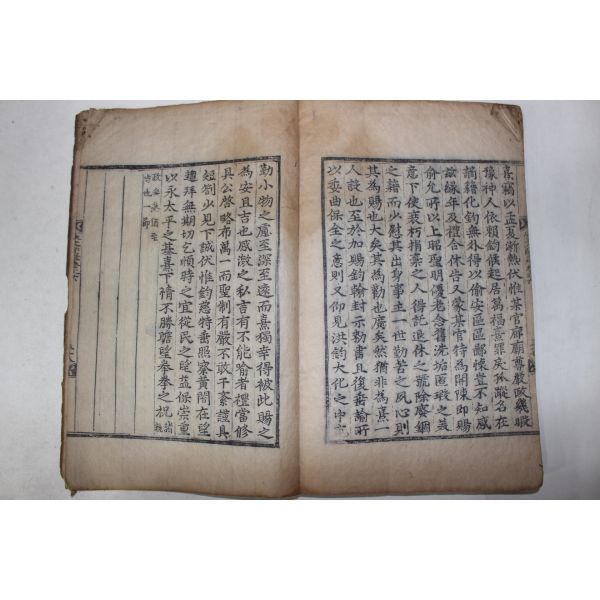 熹竊以孟夏漸熱伏惟某官廊廟尊嚴政幾暇
豫神人依賴鈞候起居萬福熹罪戾孤蹤名在
謫籍化鈞無外得以偷安區區鄙懷豈不知感
茲緣年及禮合休告又蒙某官特為開陳即賜
俞允所以上昭聖明優老念舊洗垢匿瑕之美
意下使衰朽捐棄之人得託退休之號除廢錮
之籍而少慰其出身事主一世勤苦之夙心則
其為賜也大矣其為勸也廣矣然猶非為熹一
人設也至於加賜鈞翰封示勑書且復垂諭所
以委曲保全之意則又仰見洪鈞大化之中克
勤小物之慮至深至遠而熹獨幸得被此賜之
為安且吉也感激之私言有不能喻者禮當修
具公啓略布萬一而聖制有嚴不敢干紊謹具
短劄少見下誠伏惟鈞慈特垂照察黃閤在望
造拜無期切乞順時之宜從民之望益保崇重
以永太平之基熹下情不勝瞻望拳拳之祝諸執
政